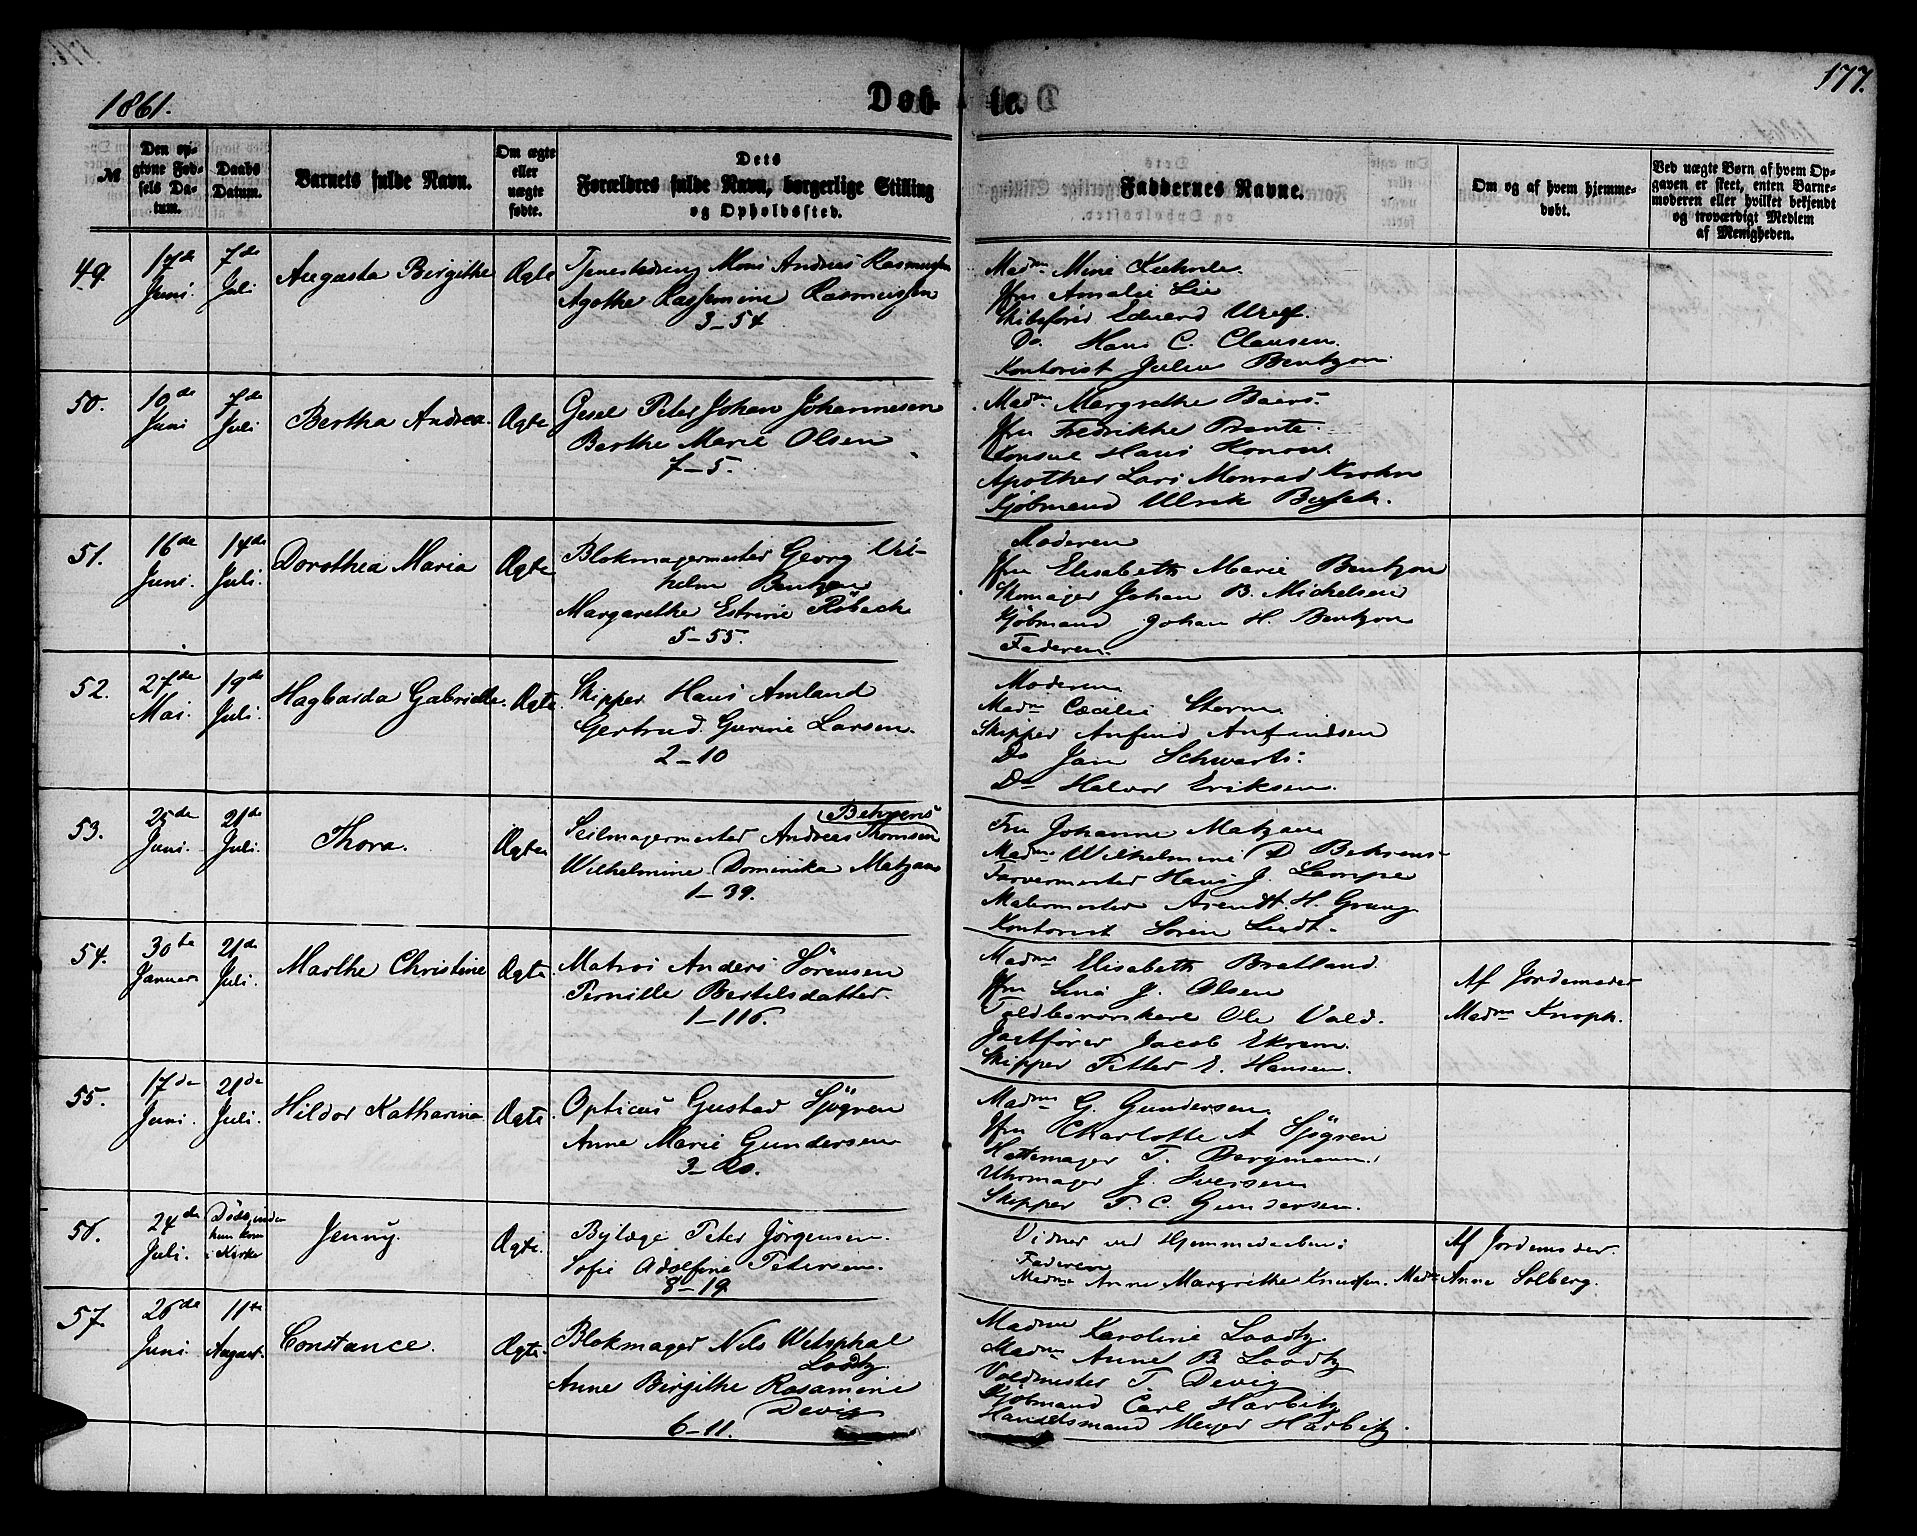 1861.
Døb-
te.
177.
№
Den op-
givne Fød-
sels Da-
tum.
Daabs
Datum.
Barnets fulde Navn.
Om ægte
eller
uægte
fødte.
Dets
Forældres fulde Navn, borgerlige Stilling
og Opholdssted.
Faddernes Navne.
Om og af hvem hjemme-
døbt.
Ved uægte Børn af hvem Op-
gaven er skeet, enten Barne-
moderen eller hvilket bekjendt
og troværdigt Medlem
af Menigheden.
49.
17de
Juni.
7de
Juli
Augusta Birgithe
Ægte
Tjenestedreng Mons Andreas Rasmussen
Agathe Rasmussen
3-54
Madme Mine
Jfru Amalie Lie
Skibsfører Edvard
Do. Hans C. Clausen.
Kontorist Julius Bentzon.
50.
10de
Juni
7de
Juli
Bertha Andrea.
Ægte
Gesel Peter Johan Johannesen
Berthe Marie Olsen
7-5.
Madme Margrethe Baers.
Jfru Fredrikke Prante.
Konsul Hans Konow.
Apother Lars Monrad Krohn
Kjøbmand Ulrik Busch.
51.
16de
Juni.
14de
Juli.
Dorothea Maria
Ægte
Blokmagermester Georg Vil-
helm Bentzon
Margarethe Estrine Røbech
5-55.
Moderen
Jfru Elisabeth Marie Bentzon
Skomager Johan B. Michelsen
Kjøbmand Johan H. Bentzon
Faderen.
52.
27de
Mai.
19de
Juli.
Hagbarda Gabrielle.
Ægte
Skipper Hans Amland
Gertrud Gurine Larsen.
2-10
Moderen
Madme Cæcilie Storm
Skipper Anfind Anfindsen
Do Jan Schwarts.
Do Halvor Eriksen.
53.
25de
Juni.
21de
Juli.
Thora.
Ægte
Behrens
Seilmagermester Andreas Thomsen
Wilhelmine Dominika Matzau
1-39.
Fru Johanne Matzau
Madme Wilhelmine D Behrens
Farvermester Hans J. Lampe
Malermester Arendt H. Graug
Kontorist Søren Lindt.
54.
30te
Januar
21de
Juli.
Marthe Christine
Ægte
Matros Anders Sörensen
Pernille Bertelsdatter.
1-116.
Madme Elisabeth Bratland.
Jfru Lina J. Olsen
Toldbesværskarl Ole Vold.
Jagtfører Jacob Ekrem.
Skipper Petter E. Hansen.
Af Jordemoder
Madme Knoph.
55.
17de
Juni.
21de
Juli.
Hildor Katharina
Ægte
Opticus Gustad Sjögren
Anne Marie Gundersen
3-20.
Madme G. Gundersen
Jfru Charlotte A Sjögren
Hattemager T. Bergmann.
Uhrmager J. Iversen
Skipper T. C. Gundersen.
56.
24de
Juli.
Døde inden
hun kom
i Kirke
Jenny.
Ægte.
Bylæge Peter Jørgensen.
Sofie Adolfine Petersen.
8-19
Vidner ved Hjemmedaaben:
Faderen
Madme Anne Margrethe Knudsen.
Af Jordemoder
Madme Anne Solberg.
57.
26de
Juni
11te
August.
Constance.
Ægte.
Blokmager Nils Wetsphal
Loodtz
Anne Birgithe Rosamine
Devig
6-11.
Madme Karoline Loodtz
Madme Anne B. Loodtz
Voldmester T. Devig
Kjøbmand Carl Harbitz
Handelsmand Meyer Harbitz.